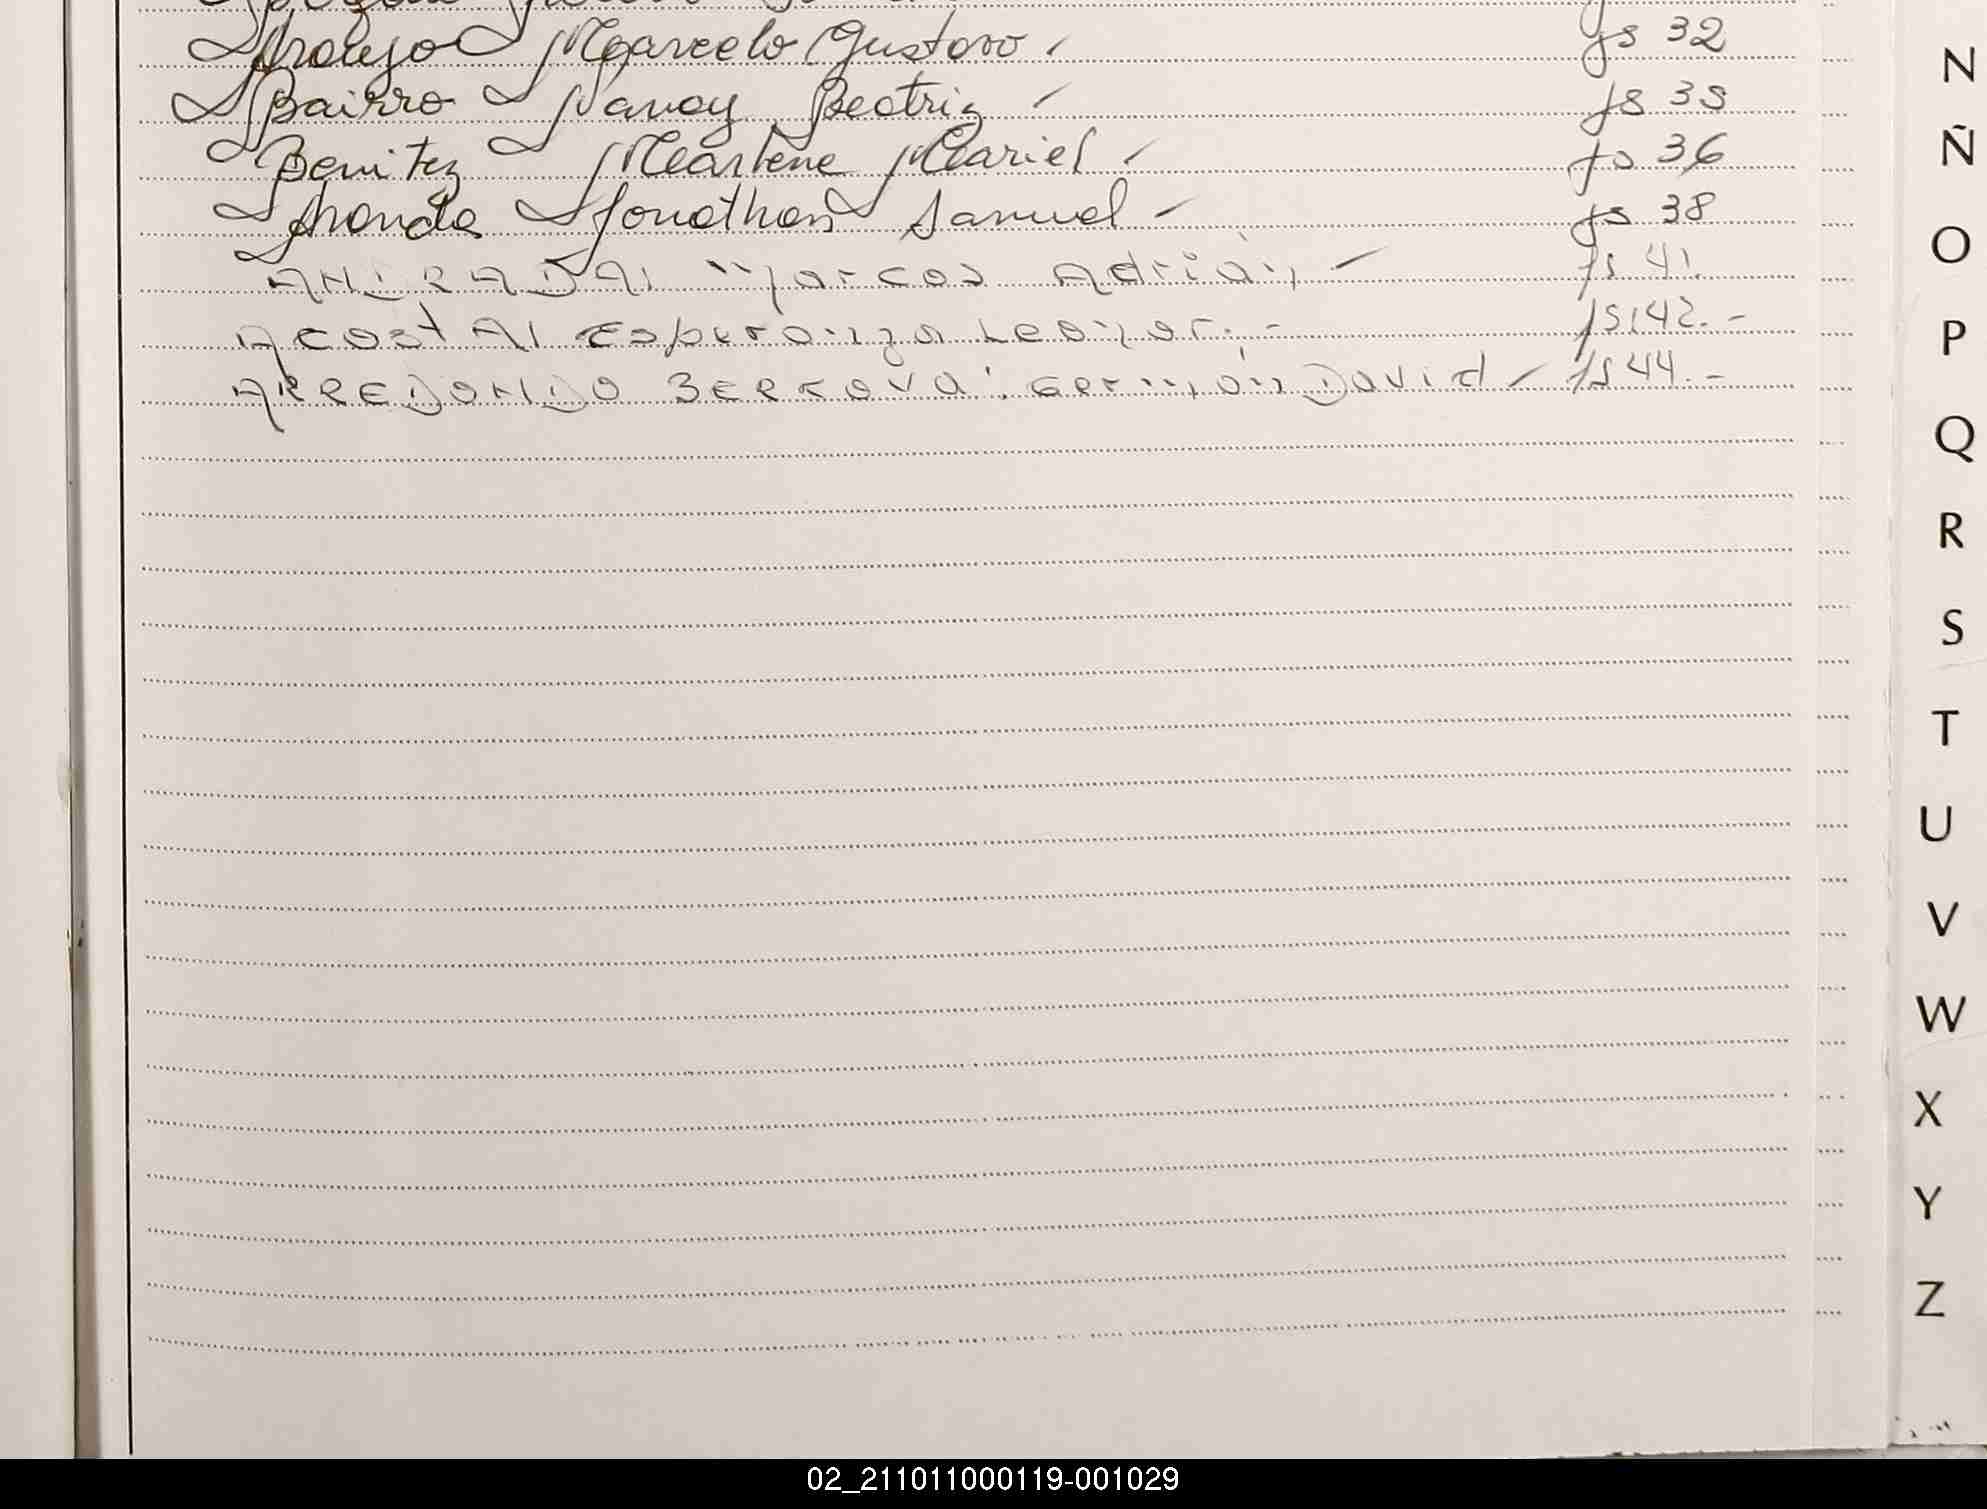 Araujo Marcelo Gustavo fs 32
Bairro Nancy Beatriz fs 35
Benitez Marlene Mariel fs 36
Aranda Jonathan Samuel - fs 38
ANDRADA Marcos Adrián - fs 41.
ACOSTA Esperanza Leonor. - fs 42. -
ARREDONDO German David - fs 44. -
N
Ñ
O
P
Q
R
S
T
U
V
W
X
Y
Z
02_211011000119-001029